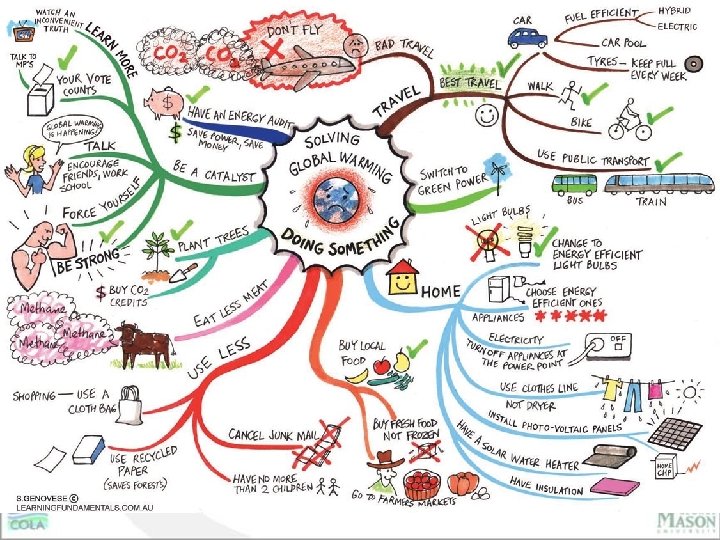 WATCH AN
INCONVENIENT
TRUTH
LEARN
MORE
TALK TO
MP'S
YOUR VOTE
COUNTS
GLOBAL WARMING
IS HAPPENING!
TALK
ENCOURAGE
FRIENDS, WORK
SCHOOL
FORCE YOURSELF
BE STRONG
BE A CATALYST
HAVE AN ENERGY AUDIT
$ SAVE POWER, SAVE
MONEY
CO2
CO2
DON'T FLY
BAD TRAVEL
TRAVEL
BEST TRAVEL
CAR
FUEL EFFICIENT
HYBRID
ELECTRIC
CAR POOL
TYRES - KEEP FULL
EVERY WEEK
WALK
BIKE
USE PUBLIC TRANSPORT
BUS
TRAIN
SOLVING
GLOBAL WARMING
DOING SOMETHING
SWITCH TO
GREEN POWER
PLANT TREES
$ BUY CO2
CREDITS
EAT LESS MEAT
Methane
Methane
Methane
USE LESS
SHOPPING - USE A
CLOTH BAG
USE RECYCLED
PAPER
(SAVES FORESTS)
CANCEL JUNK MAIL
HAVE NO MORE
THAN 2 CHILDREN
BUY LOCAL
FOOD
BUY FRESH FOOD
NOT FROZEN
GO TO FARMERS MARKETS
HOME
LIGHT BULBS
CHANGE TO
ENERGY EFFICIENT
LIGHT BULBS
CHOOSE ENERGY
EFFICIENT ONES
APPLIANCES
ELECTRICITY
TURN OFF APPLIANCES AT
THE POWER POINT
OFF
USE CLOTHES LINE
NOT DRYER
INSTALL PHOTO-VOLTAIC PANELS
HAVE A SOLAR WATER HEATER
HOME
CHP
HAVE INSULATION
S.GENOVESE ©
LEARNINGFUNDAMENTALS.COM.AU
COLA
MASON
UNIVERSITY